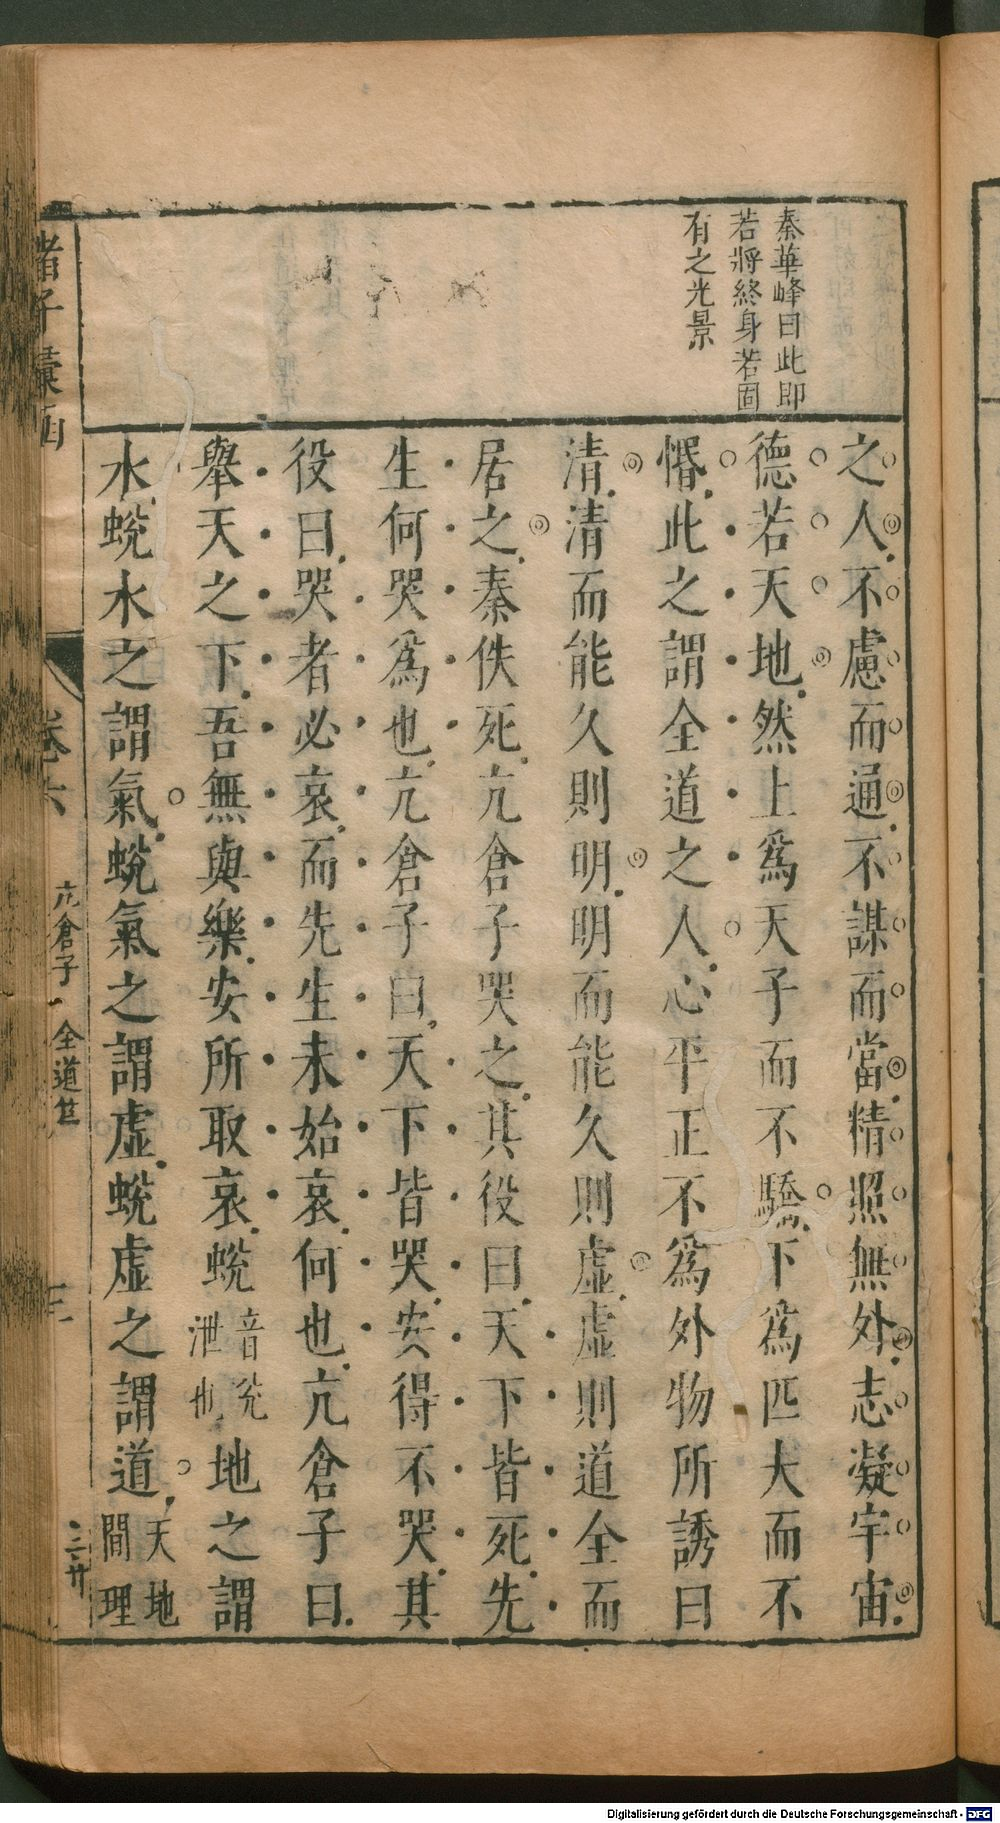 秦華峰曰此即
若將終身若固
有之光景
之人不慮而通不謀而當精照無外志凝宇宙
德若天地然上爲天子而不驕下爲匹夫而不
惛此之謂全道之人心平正不爲外物所誘曰
清清而能久則明明而能久則虛虛則道全而
居之秦佚死亢倉子哭之其役曰天下皆死先
生何哭爲也亢倉子曰天下皆哭安得不哭其
役曰哭者必哀而先生未始哀何也亢倉子曰
舉天之下吾無與樂安所取哀蛻音兊泄也地之謂
水蛻水之謂氣蛻氣之謂虛蛻虛之謂道天地間理
諸子彙函
卷六
亢倉子 全道
三廿
Digitalisierung gefördert durch die Deutsche Forschungsgemeinschaft - DFG